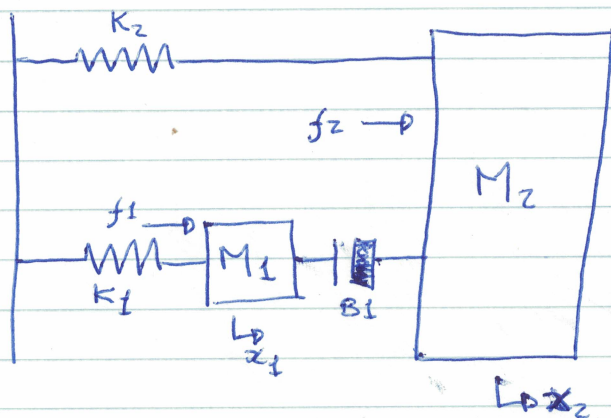 K2
f2
M2
f1
M1
K1
B1
x1
x2